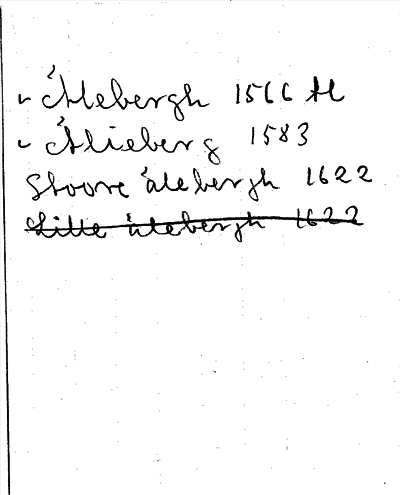 Ålebergh 1566 Hl
Ålieberg 1583
Stoore ålebergh 1622
Lille ålebergh 1622